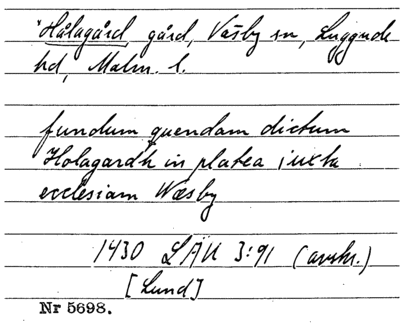 *Hålagård, gård, Väsby sn, Luggude
hd, Malm. l.
fundum quendam dictum
Holagardh in platea iuxta
ecclesiam Wæsby
1430 LÄU 3:91 (avskr.)
[Lund]
Nr 5698.